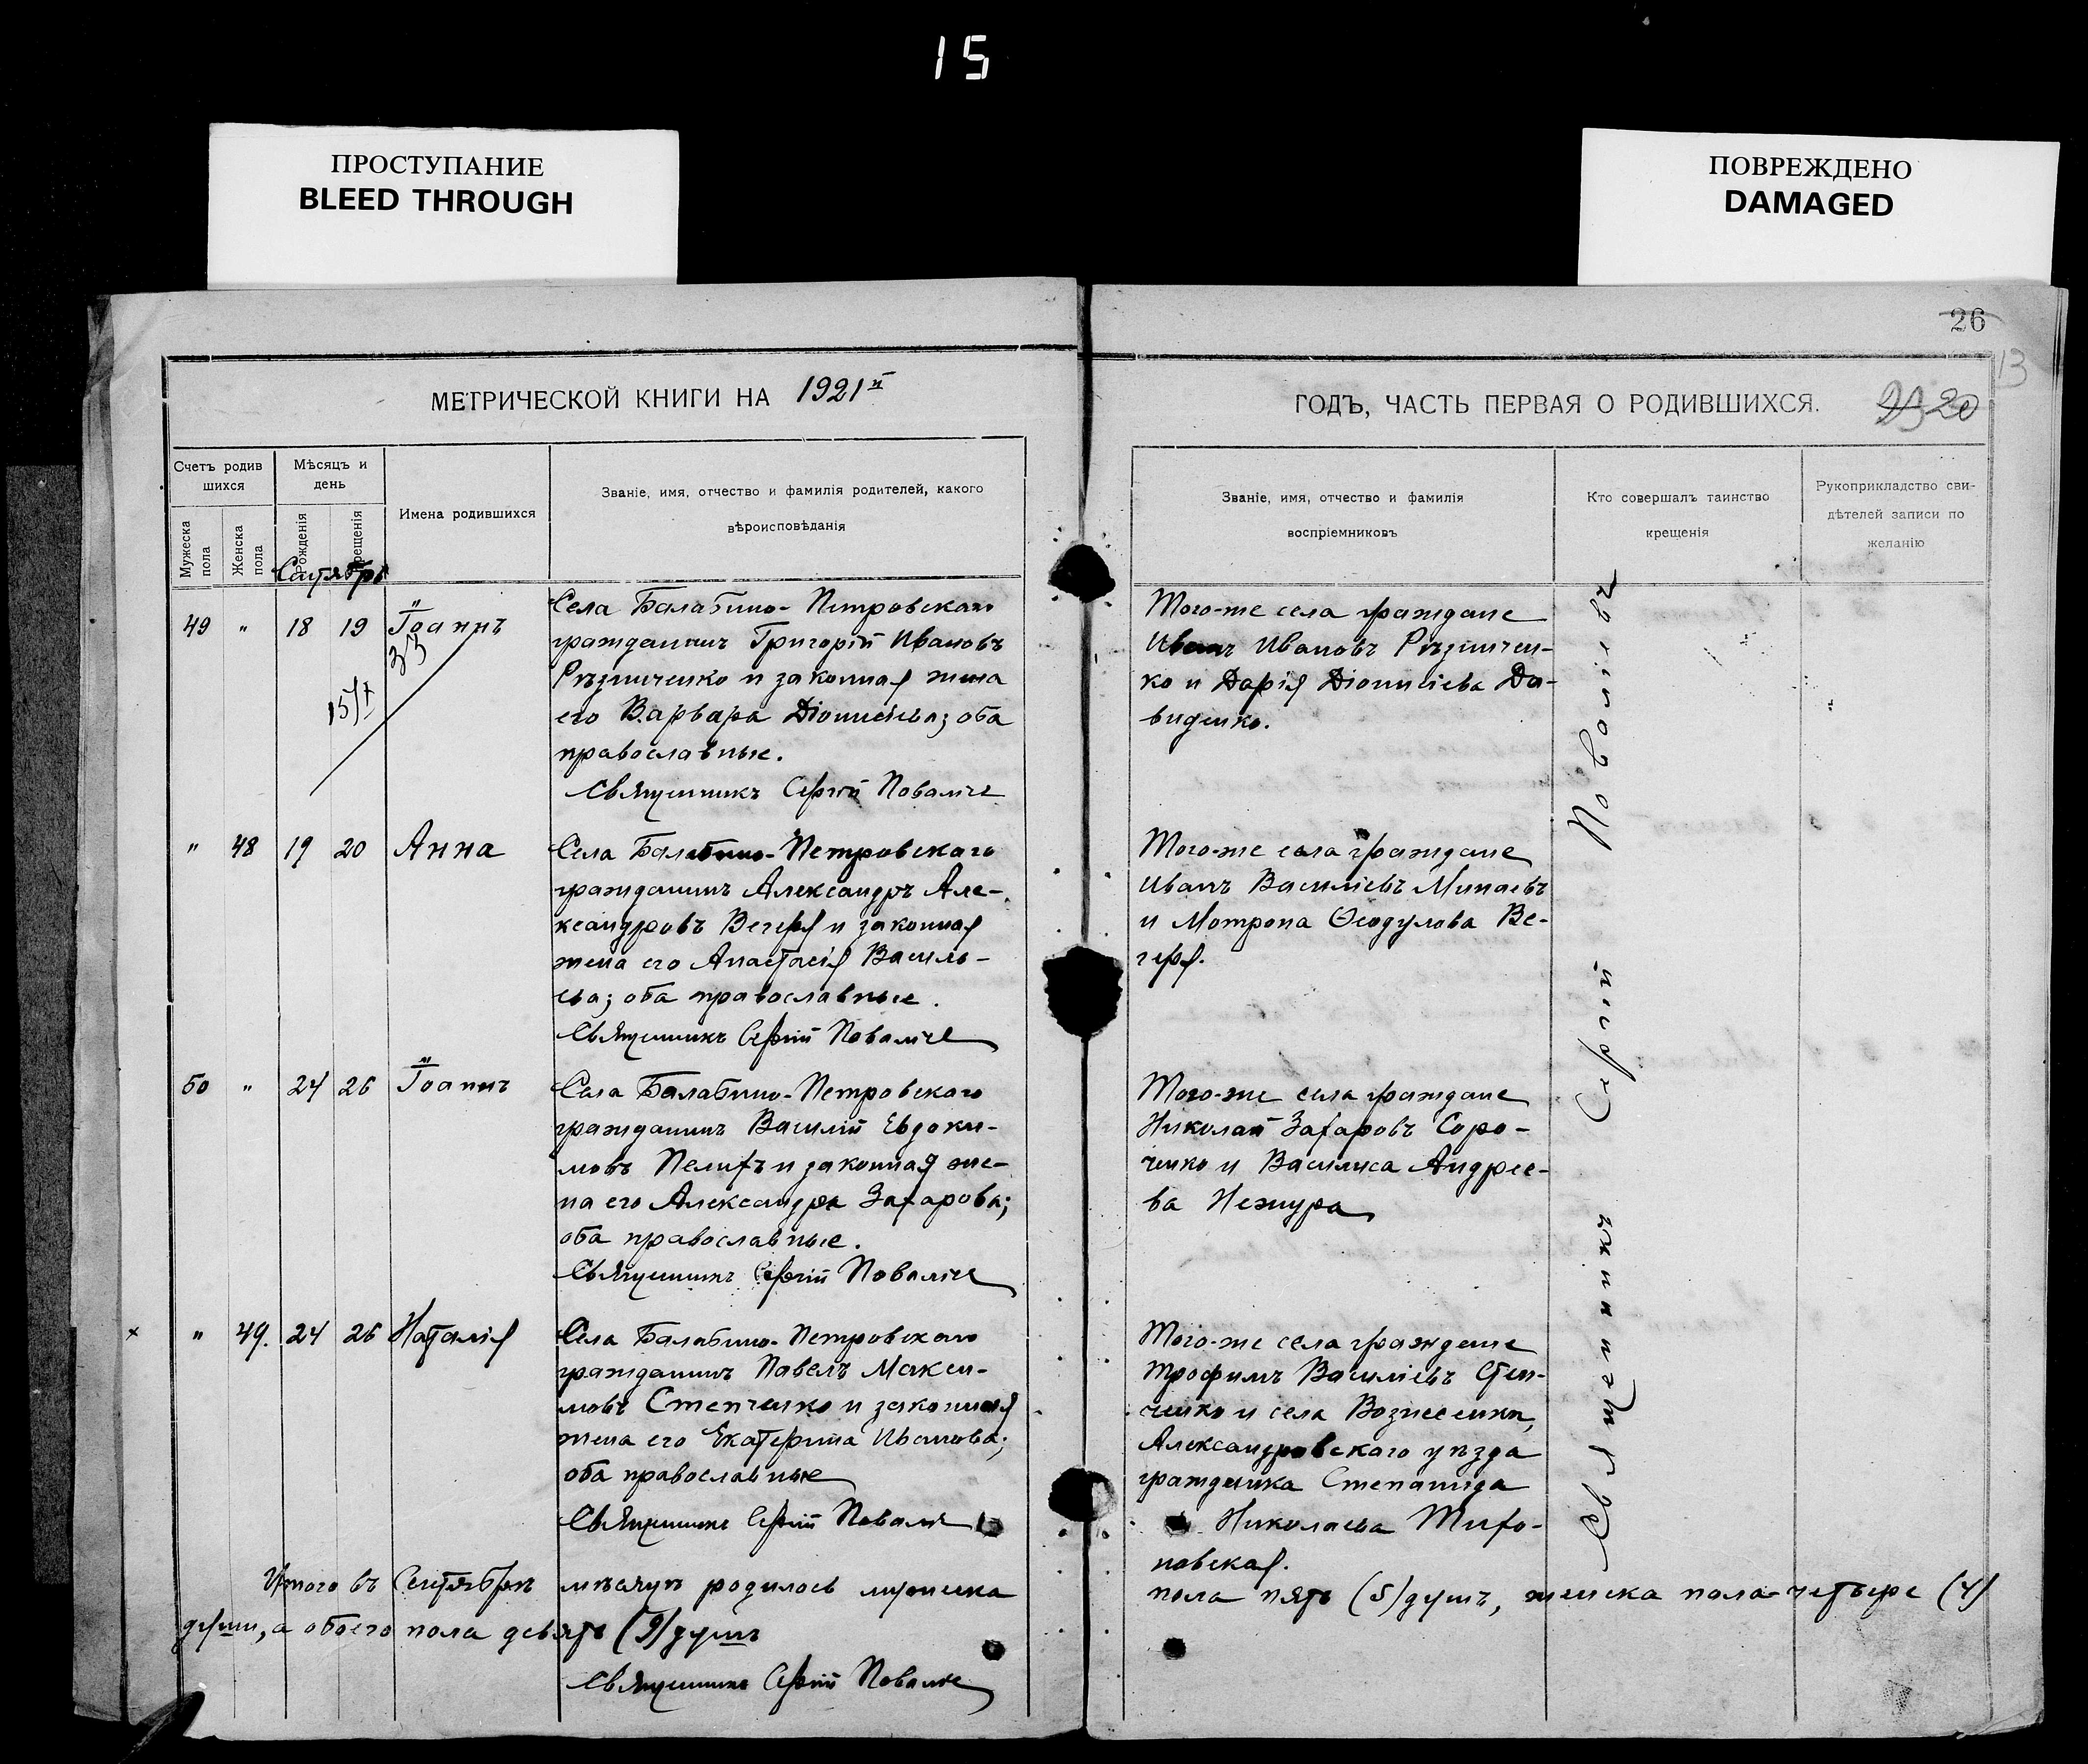 15
ПРОСТУПАНИЕ
BLEED THROUGH
ПОВРЕЖДЕНО
DAMAGED
26
13
20
МЕТРИЧЕСКОЙ КНИГИ НА 1921й
ГОДЪ, ЧАСТЬ ПЕРВАЯ О РОДИВШИХСЯ.
Счетъ родив
шихся
Мужеска пола
Женска пола
Мѣсяцъ и
день
Рожденія
Крещенія
Имена родившихся
Званіе, имя, отчество и фамилія родителей, какого
вѣроисповѣданія
Званіе, имя, отчество и фамилія
воспріемниковъ
Кто совершалъ таинство
крещенія
Рукоприкладство сви-
дѣтелей записи по
желанію
Сентябрь
49 " 18 19 Іоаннъ
33
15/I
Села Балабино-Петровскаго
гражданинъ Григорій Ивановъ
Рѣзниченко и законная жена
его Варвара Діонисіева; оба
православные.
Священникъ Сергій
Того-же села граждане
Иванъ Ивановъ Рѣзничен-
ко и Дарія Діонисіева Да-
виденко.
" 48 19 20 Анна
Села Балабино-Петровскаго
гражданинъ Александръ Але-
ксандровъ Вечеря и законная
жена его Анастасія Василь-
ева; оба православные.
Священникъ Сергій
Того-же села граждане
Иванъ Василіевъ Минаевъ
и Мотрона Ѳеодулова Ве-
черя.
50 " 24 26 Іоаннъ
Села Балабино-Петровскаго
гражданинъ Василій Евдоки-
мовъ Пелихъ и законная же-
на его Александра Захарова;
оба православные.
Священникъ Сергій
Того-же села граждане
Николай Захаровъ Соро-
ченко и Василиса Андрее-
ва Нежура
" 49. 24 26 Наталія
Села Балабино-Петровскаго
гражданинъ Павелъ Макси-
мовъ Степченко и законная
жена его Екатерина Иванова;
оба православные
Священникъ Сергій
Того-же села граждане
Трофимъ Василіевъ Степ-
ченко и села Вознесенки,
Александровскаго уѣзда
гражданка Степанида
Николаева
новская.
Священникъ Сергій
Итого въ Сентябрѣ мѣсяцѣ родилось мужеска пола пять (5) душъ, женска пола четыре (4)
души, а обоего пола девять (9) душъ
Священникъ Сергій